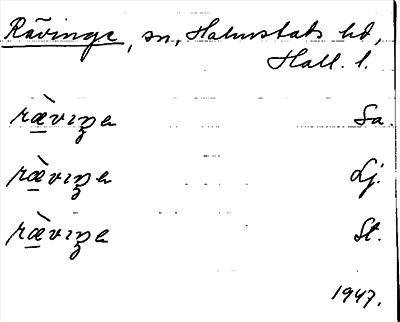 Rävinge, sn, Halmstads hd,
Hall. l.
ræ̀vıŋe Sa.
ræ̀vıŋe Lj.
ræ̀vıŋe St.
1947.